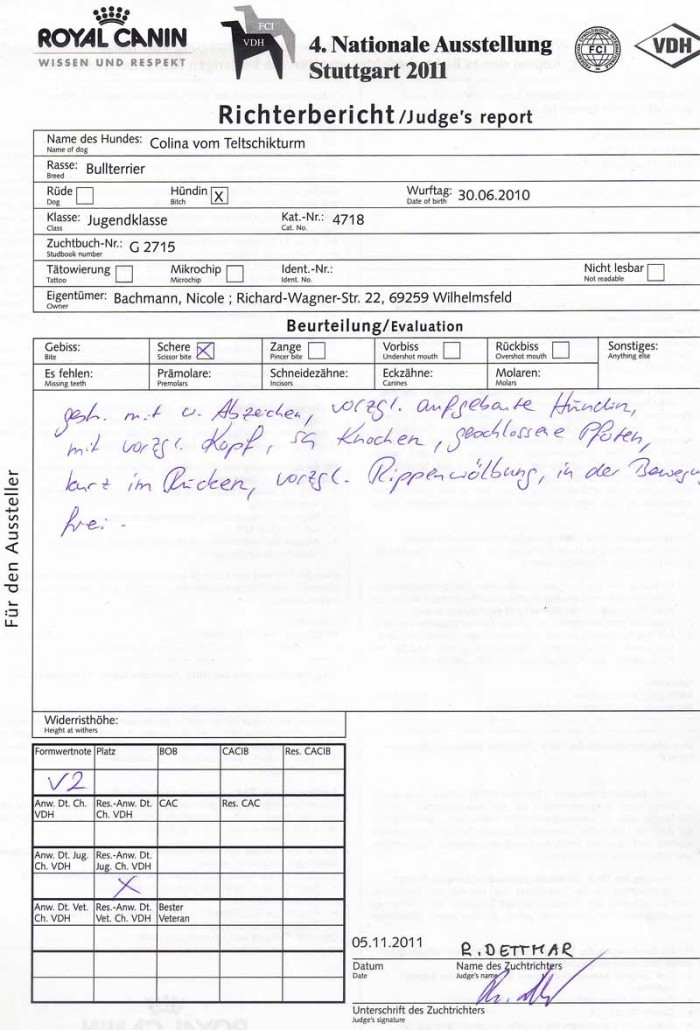 ROYAL CANIN
WISSEN UND RESPEKT
FCI
VDH
4. Nationale Ausstellung
Stuttgart 2011
FCI
VDH
Richterbericht/Judge's report
Name des Hundes: Colina vom Teltschikturm
Name of dog
Rasse: Bullterrier
Breed
Rüde Hündin X Wurftag: 30.06.2010
Dog Bitch Date of birth
Klasse: Jugendklasse Kat.-Nr.: 4718
Class Cat. No.
Zuchtbuch-Nr.: G 2715
Studbook number
Tätowierung Mikrochip Ident.-Nr.: Nicht lesbar
Tattoo Microchip Ident. No. Not readable
Eigentümer: Bachmann, Nicole ; Richard-Wagner-Str. 22, 69259 Wilhelmsfeld
Owner
Beurteilung/Evaluation
Gebiss: Schere X Zange Vorbiss Rückbiss Sonstiges:
Bite Scissor bite Pincer bite Undershot mouth Overshot mouth Anything else
Es fehlen: Prämolare: Schneidezähne: Eckzähne: Molaren:
Missing teeth Premolars Incisors Canines Molars
gestr. mit w. Abzeichen, vorzgl. aufgebaute Hündin,
mit vorzgl. Kopf, sg Knochen, geschlossene Pfoten,
kurz im Rücken, vorzgl. Rippenwölbung, in der Bewegu
frei.
Für den Aussteller
Widerristhöhe:
Height at withers
Formwertnote Platz BOB CACIB Res. CACIB
V2
Anw. Dt. Ch. Res.-Anw. Dt. CAC Res. CAC
VDH Ch. VDH
Anw. Dt. Jug. Res.-Anw. Dt.
Ch. VDH Jug. Ch. VDH
X
Anw. Dt. Vet. Res.-Anw. Dt. Bester
Ch. VDH Vet. Ch. VDH Veteran
05.11.2011 R. DETTMAR
Datum Name des Zuchtrichters
Date Judge's name
Unterschrift des Zuchtrichters
Judge's signature